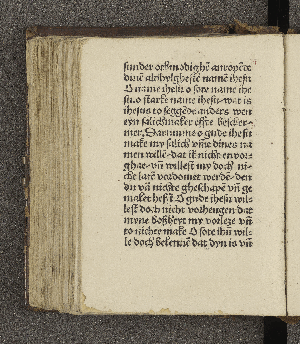 sunder othmodighē anropēde
dinē alrhylgheste namē ihesu
O name ihesu o sote name ihe
su. o starke name ihesu. wat is
ihesus to seggēde anders wen
eyn salichmaker efte bescher-
mer. Darumme o gude ihesu
make my salich vm̄e dines na
men willē. dat ik nicht en vor-
ghae. vn̄ willest my doch ni-
cht latē vordomet werdē. den
du vā nichte gheschapē vn̄ ge
maket hefst O gude ihesu wil-
lest doch nicht vorhengen dat
myne boßheyt my vorleze vn̄
to nichte make O sote ihū wil-
le doch bekennē dat dyn is vn̄